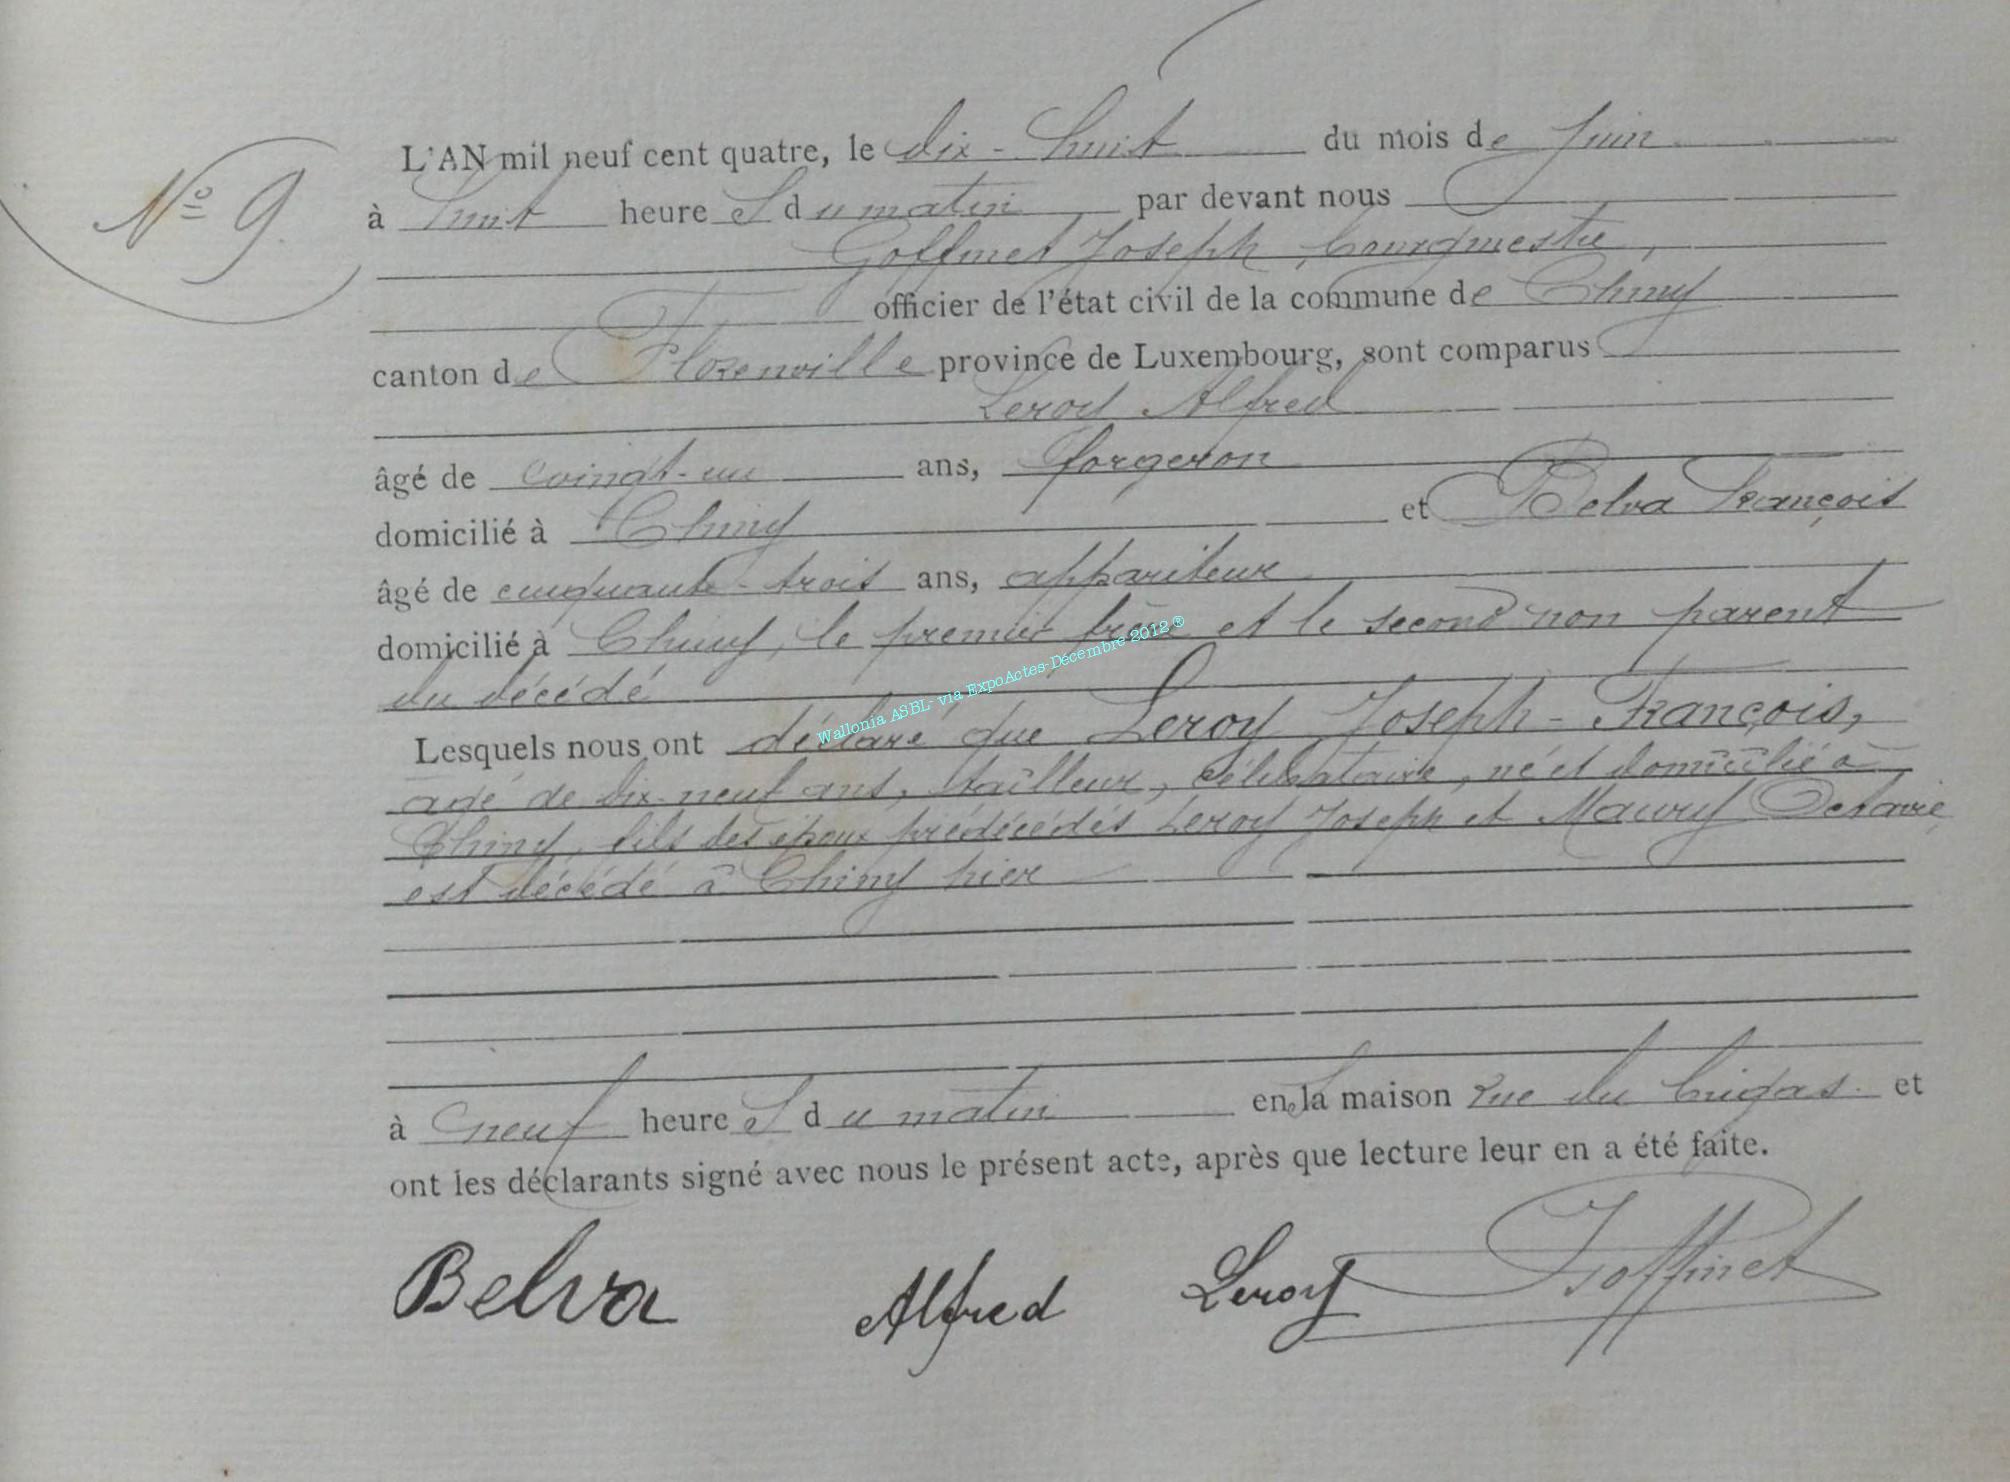 L'AN mil neuf cent quatre, le dix-huit du mois de Juin
N° 9
à huit heures du matin par devant nous
Goffinet Joseph, bourgmestre,
officier de l'état civil de la commune de Chiny
canton de Florenville province de Luxembourg, sont comparus
Leroy Alfred
âgé de vingt-un ans, forgeron
domicilié à Chiny et Belva François
âgé de cinquante-trois ans, appariteur
domicilié à Chiny, le premier frère et le second non parent
du décédé
Wallonia ASBL- via ExpoActes-Décembre 2012 ®
Lesquels nous ont déclaré que Leroy Joseph-François,
agé de dix-neuf ans, tailleur, célibataire, né et domicilié à
Chiny, fils des époux prédécédés Leroy Joseph et Maury Octavie,
est décédé à Chiny hier
à neuf heures du matin en sa maison rue du et
ont les déclarants signé avec nous le présent acte, après que lecture leur en a été faite.
Belva Alfred Leroy Goffinet